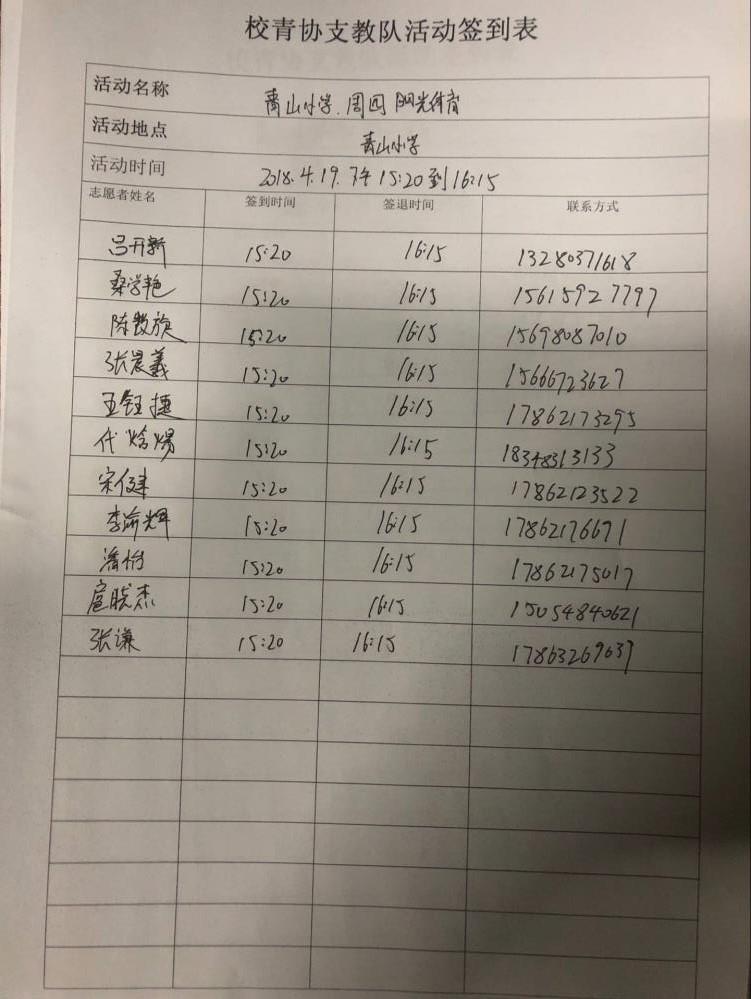 校青协支教队活动签到表
活动名称 青山小学.周四阳光体育
活动地点 青山小学
活动时间 2018.4.19.下午15:20到16:15
志愿者姓名 签到时间 签退时间 联系方式
吕开新 15:20 16:15 13280371618
桑学艳 15:20 16:15 15615927797
陈数旗 15:20 16:15 15698087010
张晨義 15:20 16:15 15666723627
王钰捷 15:20 16:15 17862173295
代焓炀 15:20 16:15 18348313133
宋健 15:20 16:15 17862123522
李渝辉 15:20 16:15 17862176671
潘怡 15:20 16:15 17862175017
扈晓杰 15:20 16:15 15054840621
张谦 15:20 16:15 17863269637